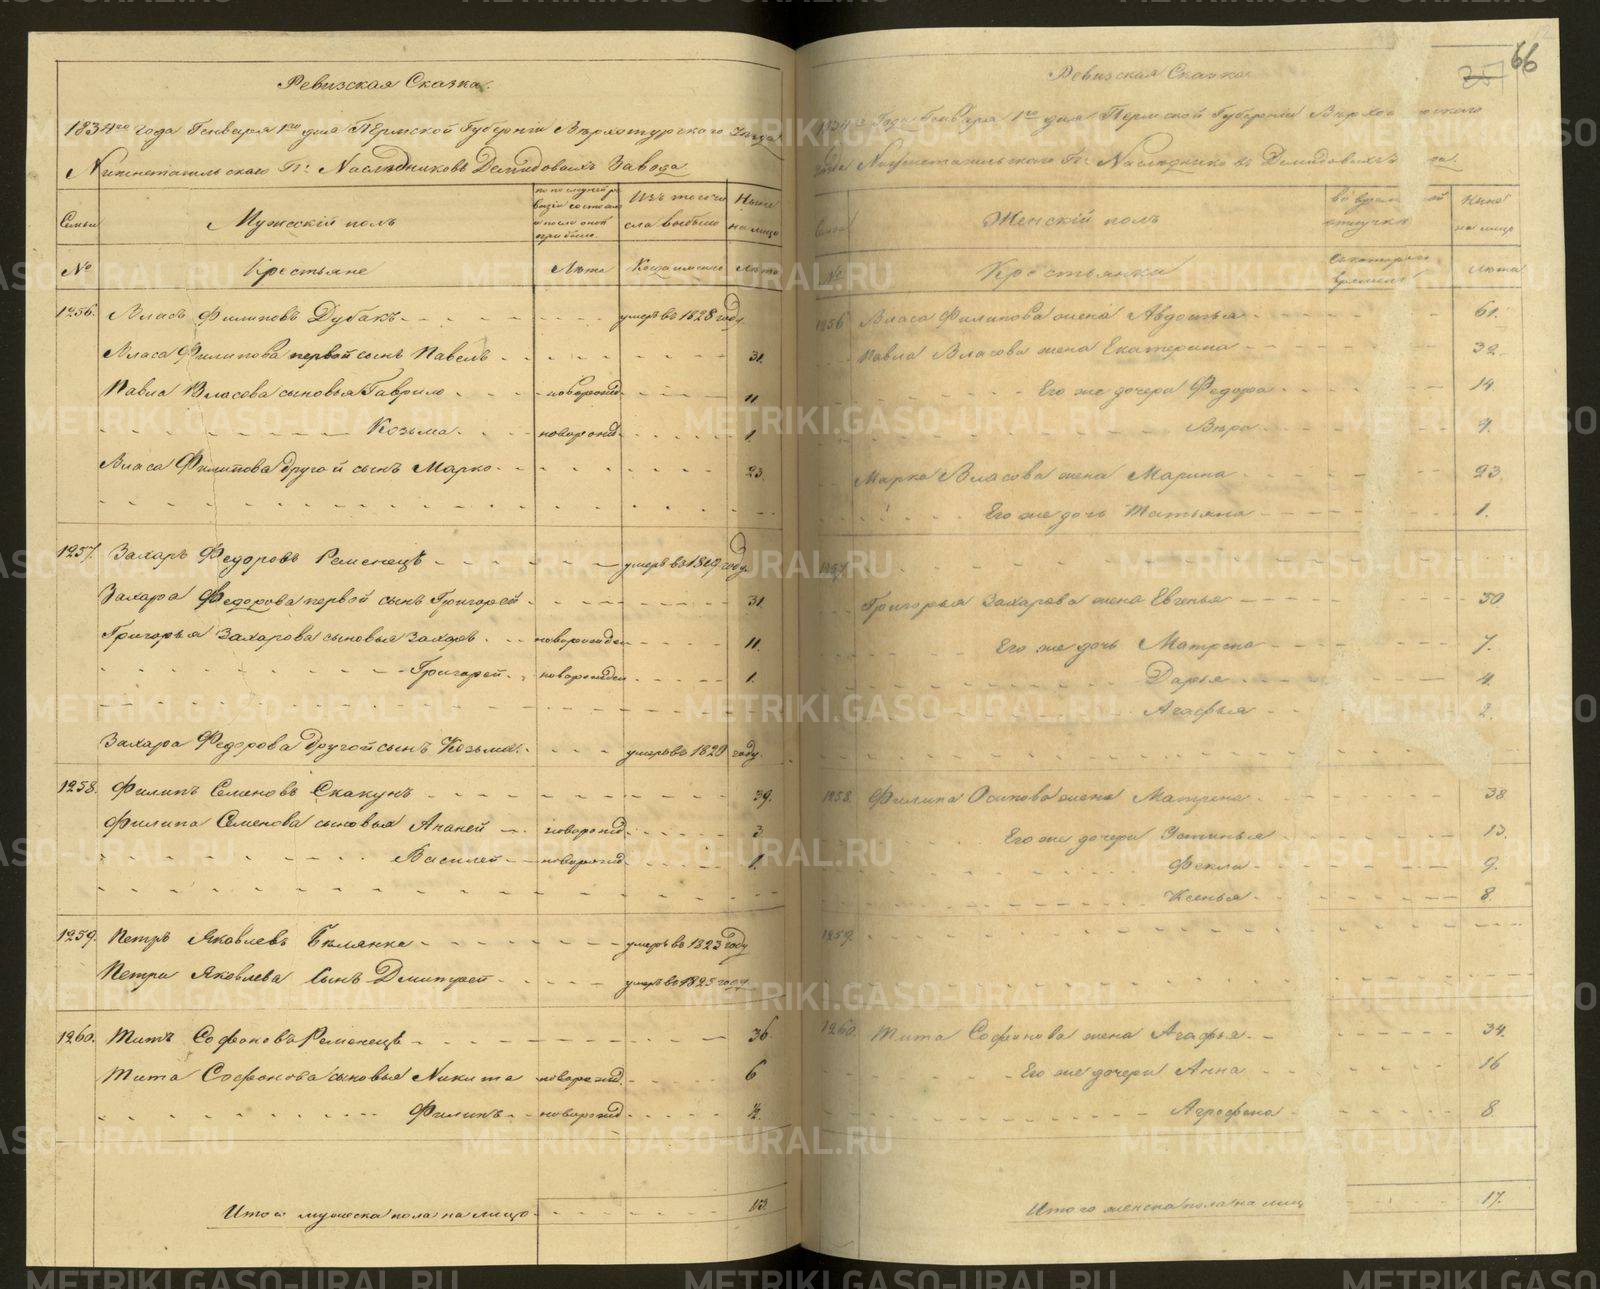 Ревизская Сказка.
1834го года Генваря 1го дня Пермской Губернiи Верхотурского Уезда
Нижнетагильскаго Гг: Наследниковъ Демидовыхъ Завода
Семьи
Мужескiй полъ
по последней ревизiи состояло и после оной прибыло
Изъ того числа выбыло
Ныне на лицо
№
Крестьяне
Лета
Когда именно
Лета
1256. Власъ Филиповъ Дубакъ умеръ въ 1828 году.
Власа Филипова первой сынъ Павелъ 31.
Павла Власова сыновья Гаврило новорожд. 11
Козьма новорожд. 1.
Власа Филипова другой сынъ Марко 23.
1257. Захаръ Федоровъ Ременецъ умеръ въ 1819 году.
Захара Федорова первой сынъ Григорей 31.
Григорья Захарова сыновья Захаръ новорожден 11.
Григорей новорожден 1.
Захара Федорова другой сынъ Козьма умеръ въ 1820 году.
1258. Филипъ Семеновъ Скакунъ 39.
Филипа Семенова сыновья Ананей новорожд. 3
Василей новорожд. 1.
1259. Петръ Яковлевъ Белянка умеръ въ 1823 году
Петра Яковлева сынъ Дмитрей умеръ въ 1825 году
1260. Титъ Софоновъ Ременецъ 36.
Тита Софонова сыновья Никита новорожд. 6
Филипъ новорожд. ½.
Итого мужеска пола на лицо 13.
66
Ревизская Сказка
1834го Года Генваря 1го дня Пермской Губернiи
Нижнетагильскаго Гг: Наследниковъ Демидовыхъ
Женскiй полъ
отлучки
Ныне на лицо
№
Крестьянки
Лета
1256 Власа Филипова жена Авдотья 61.
Павла Власова жена Екатерина 32.
Его же дочери Федора 14.
Вера 9.
Марка Власова жена Марина 23.
Его же дочь Татьяна 1.
1257.
Григорья Захарова жена Евгенья 30
Его же дочь Матрена 7.
Дарья 4.
Агафья 2.
1258. Филипа Осипова жена Матрена 38.
Его же дочери Устинья 13.
Фекла 9.
Ксенья 8.
1259.
1260. Тита Софонова жена Агафья 34.
Его же дочери Анна 16
Агрофена 8.
Итого женска пола на лиц 17.
METRIKI.GASO-URAL.RU